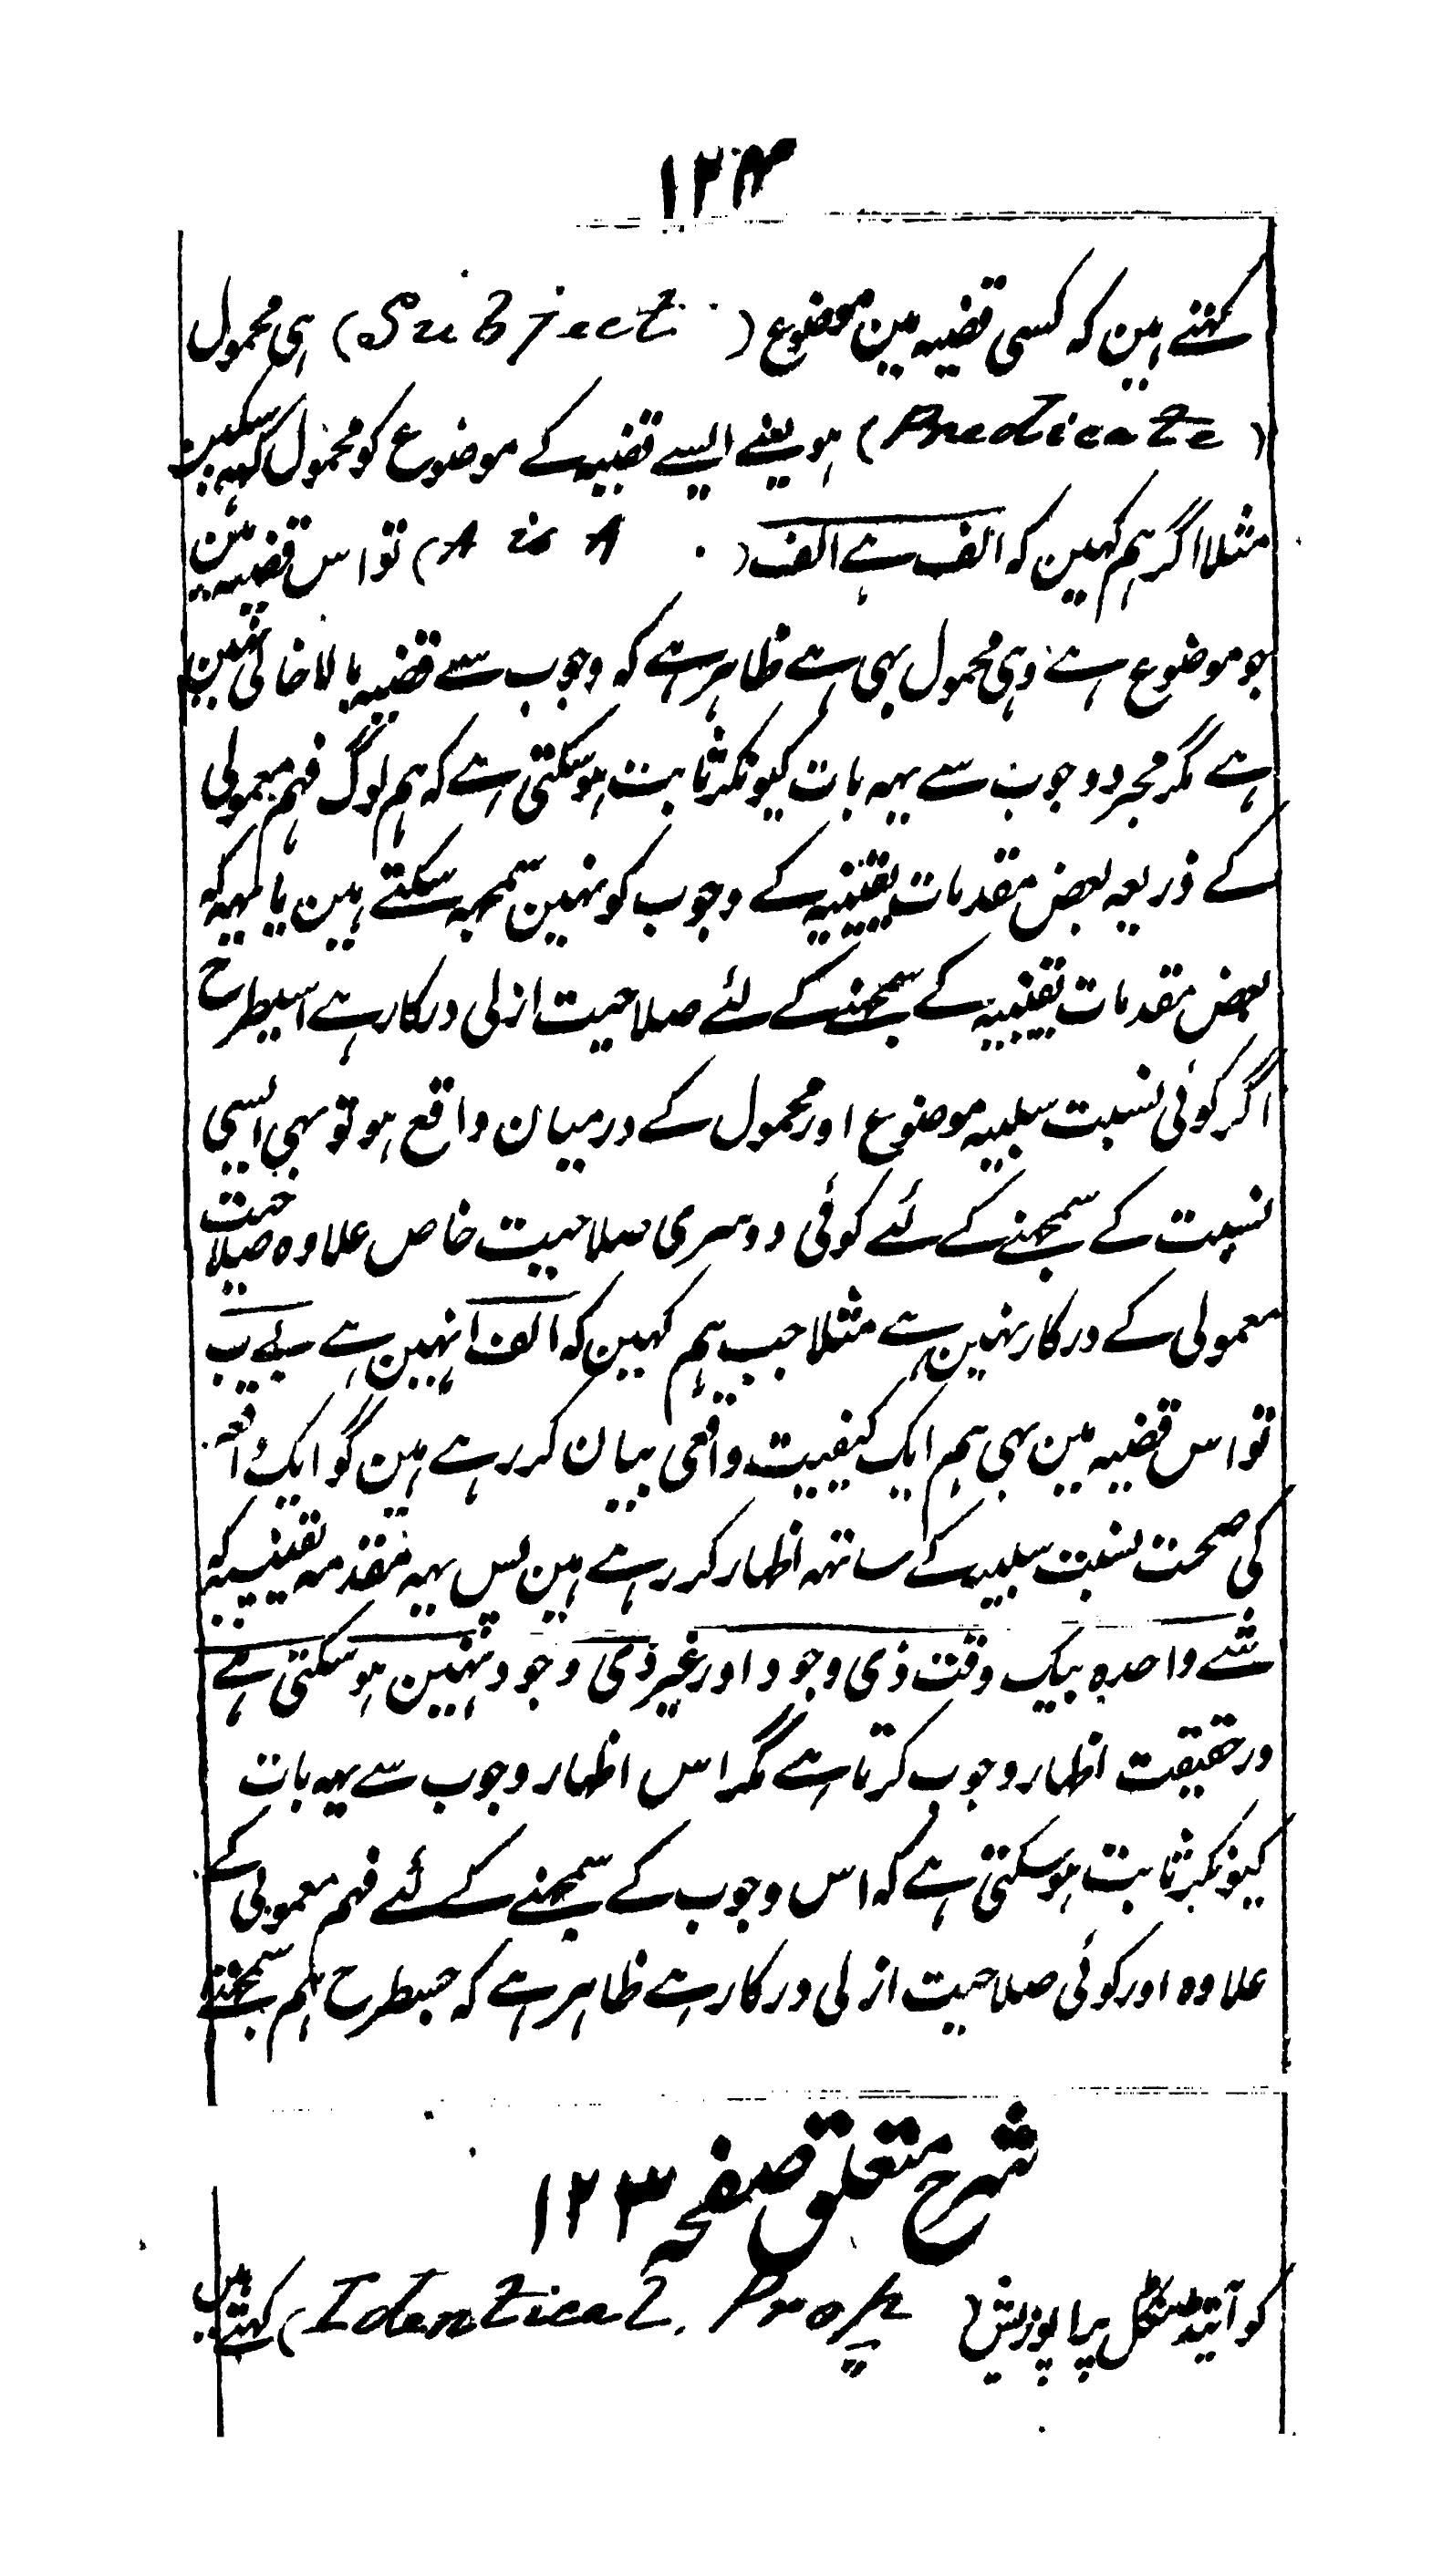 ۱۲۴
کہتے ہین کہ کسی قضیہ مین موضوع (Subject) ہی محمول
(Predicate) ہو یعنے ایسے قضیہ کے موضوع کو محمول کہہ سکین
مثلا اگر ہم کہین کہ الف ہے الف (A is A) تو اس قضیہ مین
جو موضوع ہے وہی محمول بہی ہے ظاہر ہے کہ وجوب سے قضیہ بالا خالی نہین
ہے مگر مجرد وجوب سے یہہ بات کیونکر ثابت ہوسکتی ہے کہ ہم لوگ فہم معمولی
کے ذریعہ بعض مقدمات یقینیہ کے وجوب کو نہین سمجہہ سکتے ہین یا یہہ کہ
بعض مقدمات یقینیہ کے سمجہنے کے لئے صلاحیت ازلی درکار ہے اسیطرح
اگر کوئی نسبت سلبیہ موضوع اور محمول کے درمیان واقع ہو تو بہی ایسی
نسبت کے سمجہنے کے لئے کوئی دوسری صلاحیت خاص علاوہ صلاحیت
معمولی کے درکار نہین ہے مثلا جب ہم کہین کہ الف انہین ہے بے ب
تو اس قضیہ مین بہی ہم ایک کیفیت واقعی بیان کر رہے ہین گو ایک واقعہ
کی صحت نسبت سلبیہ کے ساتہہ اظہار کر رہے ہین پس یہہ مقدمہ یقینیہ کہ
شے واحدہ بیک وقت ذی وجود اور غیر ذی وجود نہین ہوسکتی ہے
درحقیقت اظہار وجوب کرتا ہے مگر اس اظہار وجوب سے یہہ بات
کیونکر ثابت ہوسکتی ہے کہ اس وجوب کے سمجہنے کے لئے فہم معمولی کے
علاوہ اور کوئی صلاحیت ازلی درکار ہے ظاہر ہے کہ جسطرح ہم سمجہتے
شرح متعلق صفحہ ۱۲۳
کو آئیڈنٹیکل پراپوزیشن (Identical. Prop) کہتے ہین